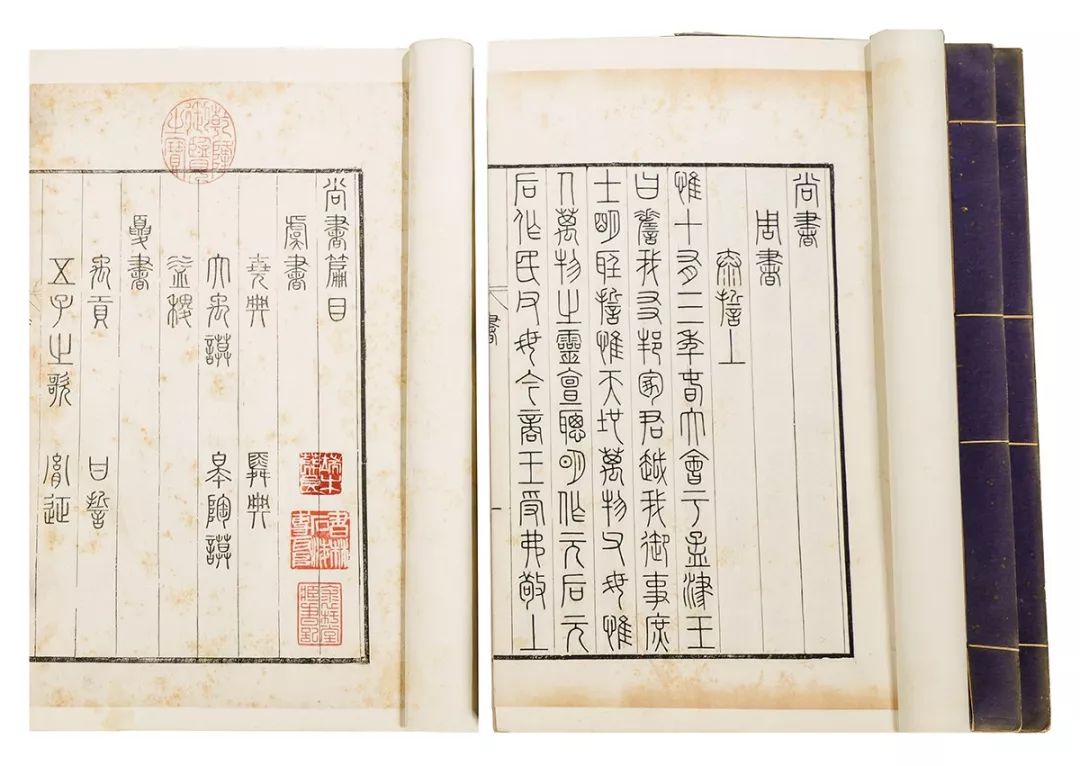 乾隆御覽之寶
尚書篇目
虞書
堯典 舜典
大禹謨 皋陶謨
益稷
夏書
禹貢 甘誓
五子之歌 胤征
尚書
周書
泰誓上
惟十有三年春大會于孟津王
曰嗟我友邦冢君越我御事庶
士明聽誓惟天地萬物父母惟
人萬物之靈亶聰明作元后元
后作民父母今商王受弗敬上
書